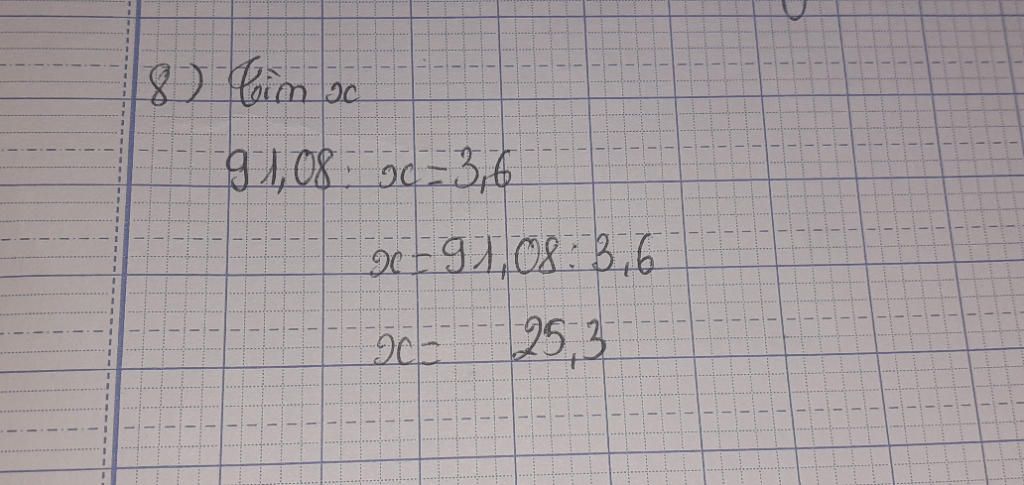 8) tìm x
91,08 : x = 3,6
x = 91,08 : 3,6
x = 25,3